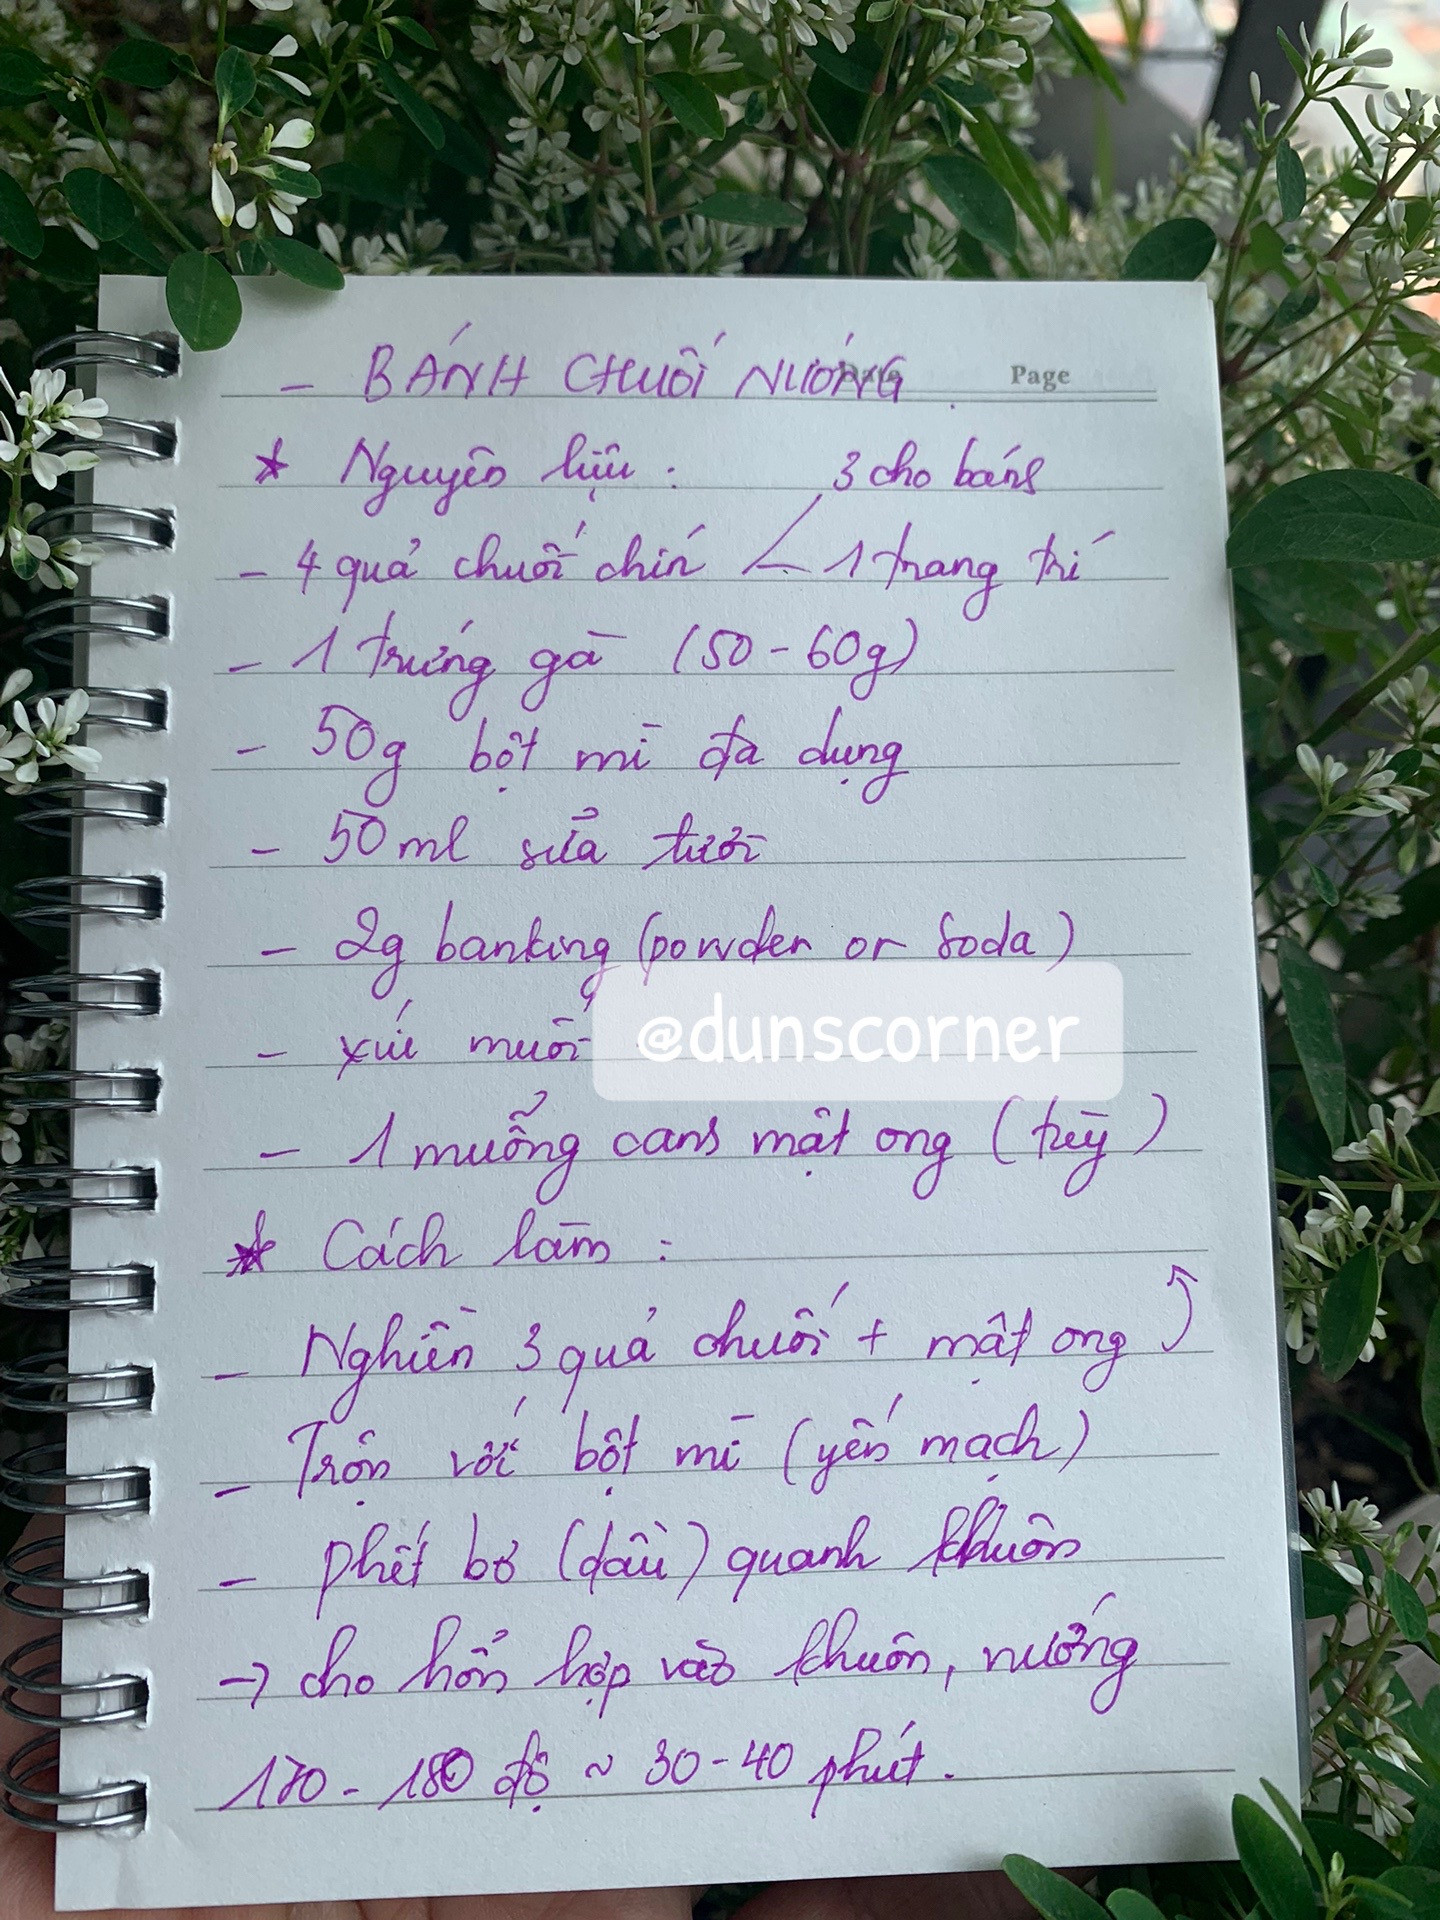 - BÁNH CHUỐI NƯỚNG
Page
* Nguyên liệu :
3 cho bánh
- 4 quả chuối chín < 1 trang trí
- 1 trứng gà (50-60g)
- 50g bột mì đa dụng
- 50ml sữa tươi
- 2g banking (powder or soda)
- xíu muối
@dunscorner
- 1 muỗng canh mật ong (tùy)
* Cách làm :
- Nghiền 3 quả chuối + mật ong ⤴
- Trộn với bột mì (yến mạch)
- phết bơ (dầu) quanh khuôn
→ cho hỗn hợp vào khuôn, nướng
170 - 180 độ ~ 30-40 phút.